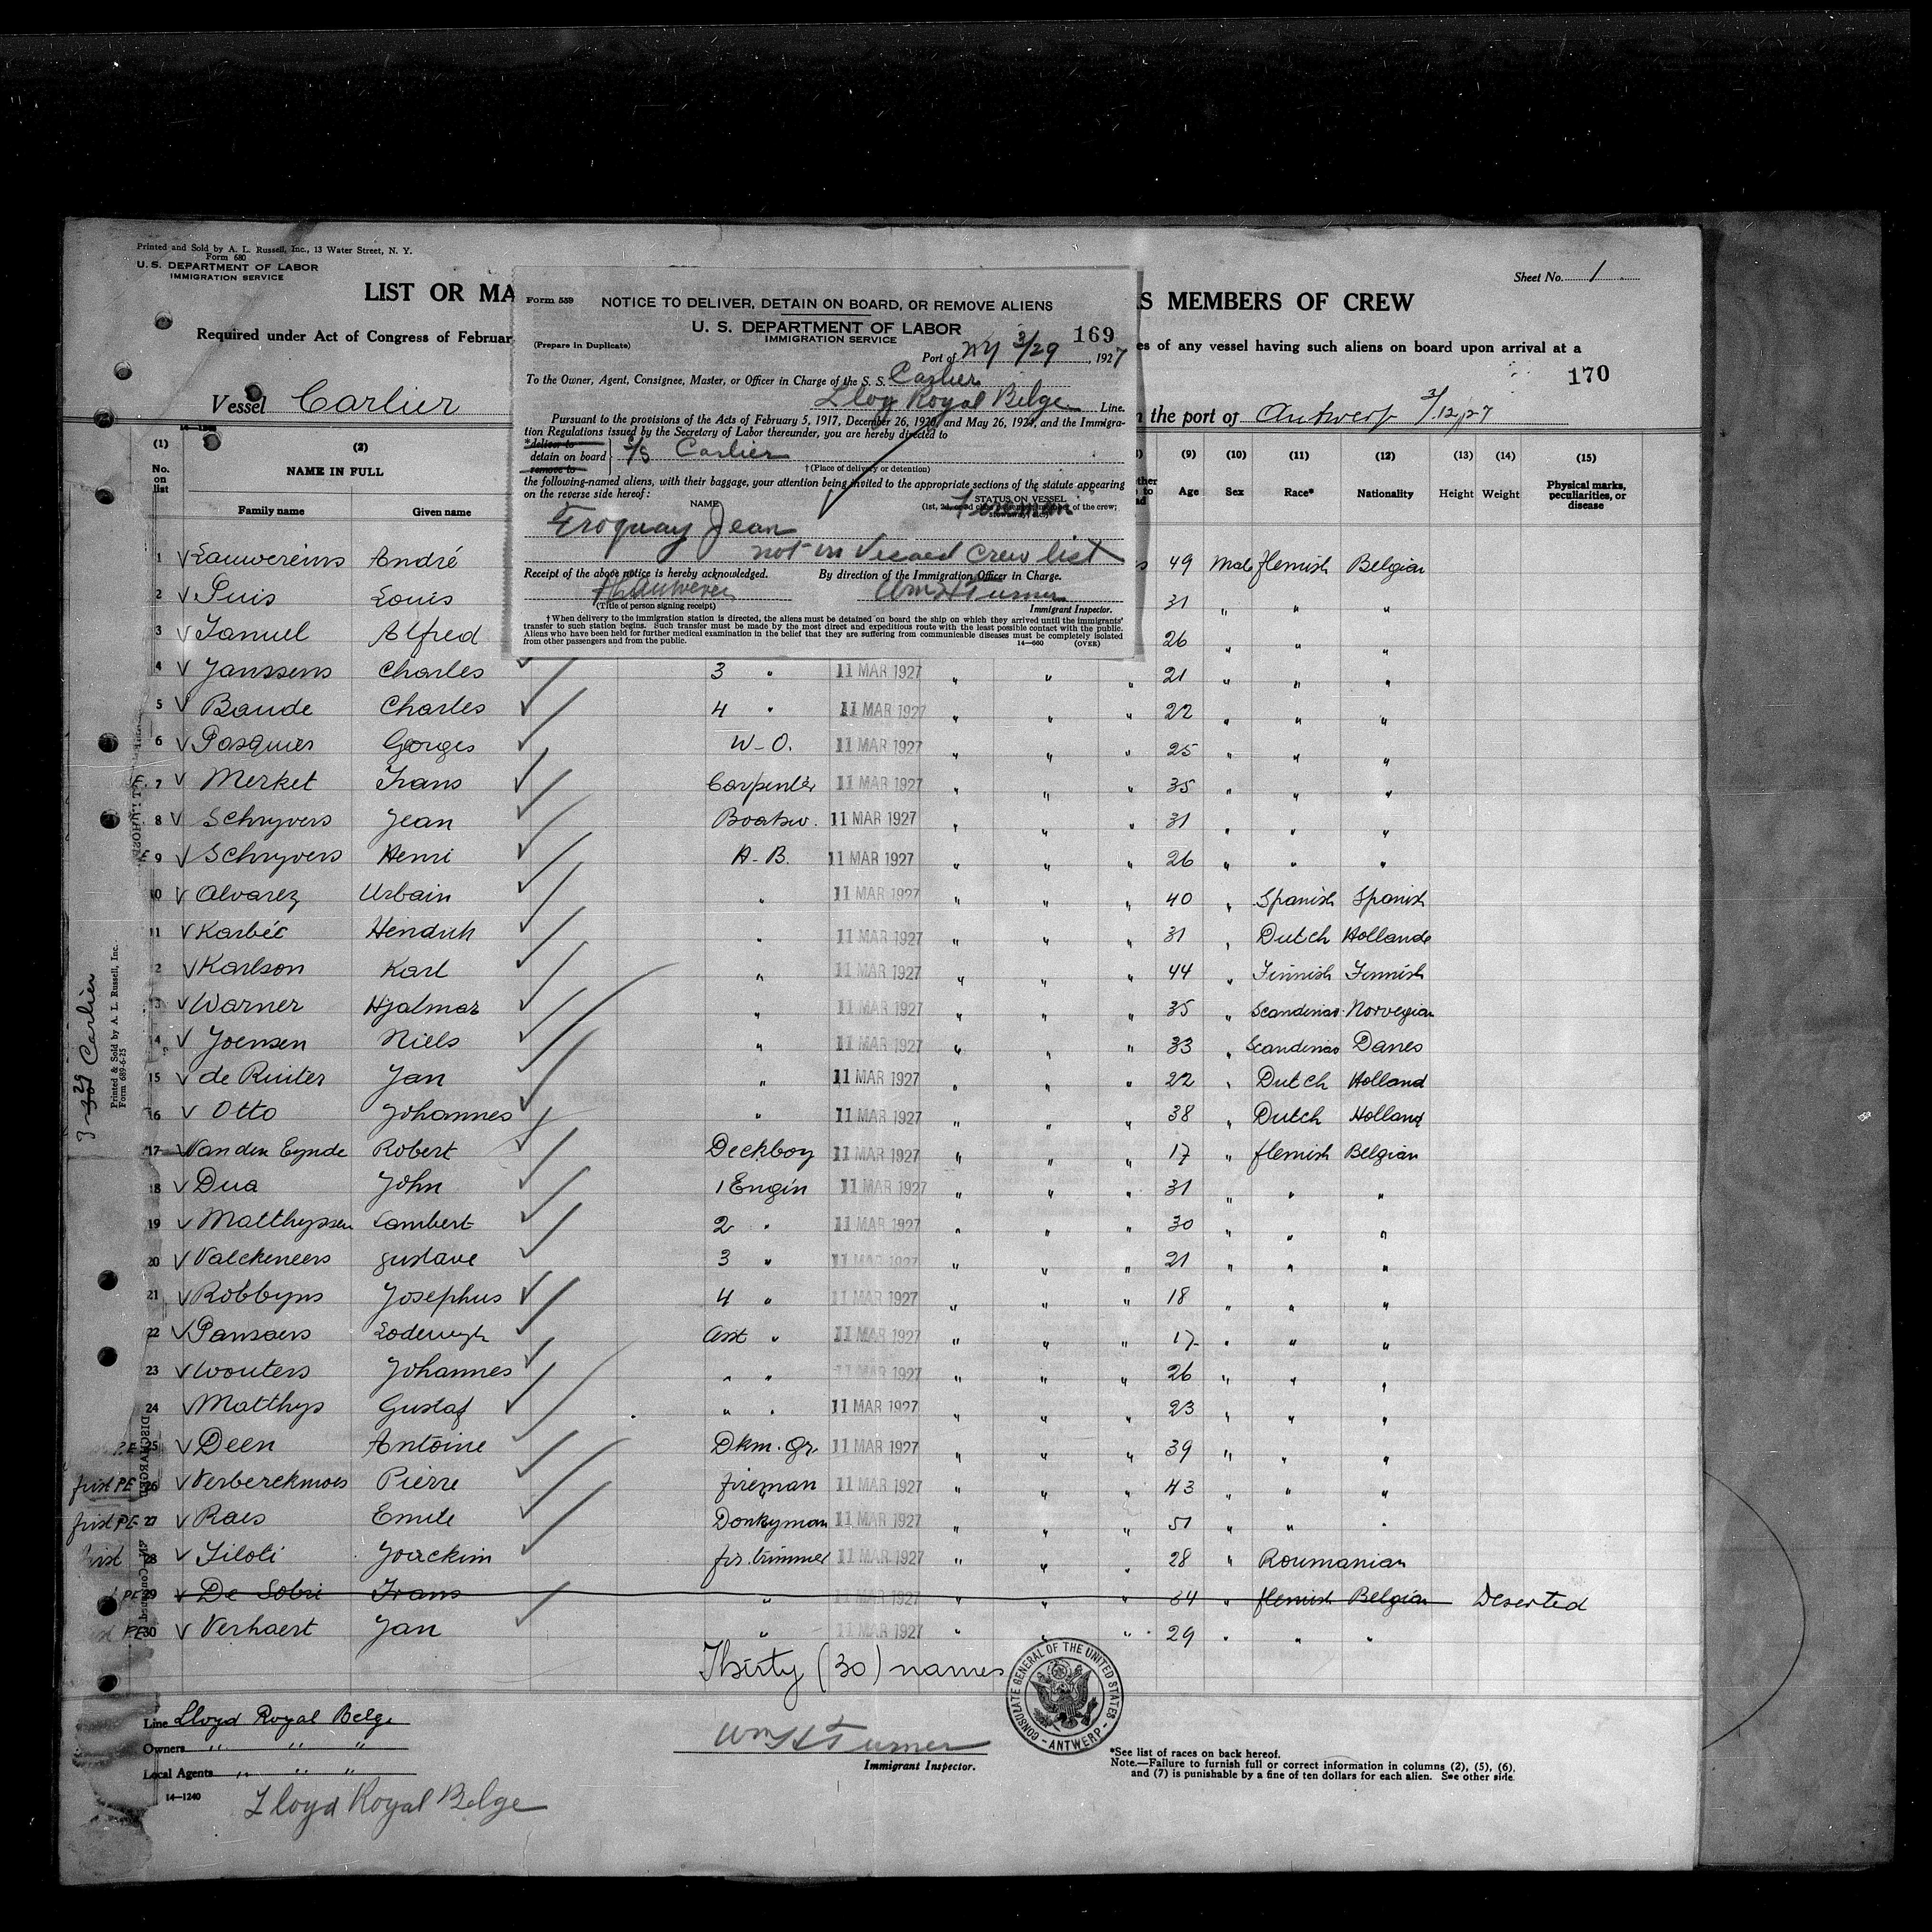 Printed and Sold by A. L. Russell, Inc., 13 Water Street, N. Y.
Form 680
U. S. DEPARTMENT OF LABOR
IMMIGRATION SERVICE
Sheet No. 1
LIST OR MA
S MEMBERS OF CREW
Required under Act of Congress of Februar
es of any vessel having such aliens on board upon arrival at a
170
Vessel Carlier
the port of Antwerp 3/12/27
Form 559
NOTICE TO DELIVER, DETAIN ON BOARD, OR REMOVE ALIENS
U. S. DEPARTMENT OF LABOR
IMMIGRATION SERVICE
169
(Prepare in Duplicate)
Port of NY 3/29, 1927
To the Owner, Agent, Consignee, Master, or Officer in Charge of the S. S. Carlier
Lloyd Royal Belge Line.
Pursuant to the provisions of the Acts of February 5, 1917, December 26, 1920, and May 26, 1924, and the Immigra-
tion Regulations issued by the Secretary of Labor thereunder, you are hereby directed to
*deliver to
detain on board S/S Carlier
remove to
†(Place of delivery or detention)
the following-named aliens, with their baggage, your attention being invited to the appropriate sections of the statute appearing
on the reverse side hereof:
NAME STATUS ON VESSEL
(1st, 2d, or 3d class passenger, member of the crew;
stowaway, etc.)
Troquay Jean
not in Visaed crew list
Receipt of the above notice is hereby acknowledged. By direction of the Immigration Officer in Charge.
Wm H Turner
(Title of person signing receipt) Immigrant Inspector.
†When delivery to the immigration station is directed, the aliens must be detained on board the ship on which they arrived until the immigrants'
transfer to such station begins. Such transfer must be made by the most direct and expeditious route with the least possible contact with the public.
Aliens who have been held for further medical examination in the belief that they are suffering from communicable diseases must be completely isolated
from other passengers and from the public. 14—660 (OVER)
(1) (2) (9) (10) (11) (12) (13) (14) (15)
No. on list NAME IN FULL Age Sex Race* Nationality Height Weight Physical marks, peculiarities, or disease
Family name Given name
1 Lauwereins André 49 Male flemish Belgian
2 Puis Louis 31 " " "
3 Januel Alfred 26 " " "
4 Janssens Charles 3 " 11 MAR 1927 " " " 21 " " "
5 Baude Charles 4 " 11 MAR 1927 " " " 22 " " "
6 Pasquier Georges W-O. 11 MAR 1927 " " " 25 " " "
7 Merket Frans Carpenter 11 MAR 1927 " " " 35 " " "
8 Schryvers Jean Boatsw. 11 MAR 1927 " " " 31 " " "
9 Schryvers Henri A-B. 11 MAR 1927 " " " 26 " " "
10 Alvarez Urbain " 11 MAR 1927 " " " 40 " Spanish Spanish
11 Karbéc Hendrik " 11 MAR 1927 " " " 31 " Dutch Hollande
12 Karlson Karl " 11 MAR 1927 " " " 44 " Finnish Finnish
13 Warner Hjalmar " 11 MAR 1927 " " " 35 " Scandinav. Norvegian
14 Joensen Niels " 11 MAR 1927 " " " 33 " Scandinav Danes
15 de Ruiter Jan " 11 MAR 1927 " " " 22 " Dutch Holland
16 Otto Johannes " 11 MAR 1927 " " " 38 " Dutch Holland
17 Van den Eynde Robert Deckboy 11 MAR 1927 " " " 17 " flemish Belgian
18 Dua John 1 Engin 11 MAR 1927 " " " 31 " " "
19 Matthyssen Lambert 2 " 11 MAR 1927 " " " 30 " " "
20 Valckeneers gustave 3 " 11 MAR 1927 " " " 21 " " "
21 Robbyns Josephus 4 " 11 MAR 1927 " " " 18 " " "
22 Pansaers Lodewyk Asst " 11 MAR 1927 " " " 17 " " "
23 Wouters Johannes " " 11 MAR 1927 " " " 26 " " "
24 Matthys Gustaf " " 11 MAR 1927 " " " 23 " " "
PE 25 Deen Antoine Dkm. Gr. 11 MAR 1927 " " " 39 " " "
first PE 26 Verberckmoes Pierre fireman 11 MAR 1927 " " " 43 " " "
first PE 27 Raes Emile Donkyman 11 MAR 1927 " " " 51 " " "
first 28 Siloti Joackim fir. trimmer 11 MAR 1927 " " " 28 " Roumanian
PE 29 De Sobrie Frans " 11 MAR 1927 " " " 34 " flemish Belgian Deserted
PE 30 Verhaert Jan " 11 MAR 1927 " " " 29 " " "
Thirty (30) names
CONSULATE GENERAL OF THE UNITED STATES - ANTWERP -
Line Lloyd Royal Belge
Owners " " "
Local Agents " " "
14—1240
Lloyd Royal Belge
Wm H Turner
Immigrant Inspector.
*See list of races on back hereof.
Note.—Failure to furnish full or correct information in columns (2), (5), (6),
and (7) is punishable by a fine of ten dollars for each alien. See other side.
Carlier
Printed & Sold by A. L. Russell, Inc.
Form 689-6-25
DISCHARGED